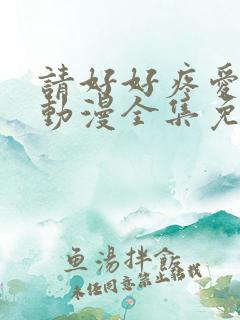 請好好疼愛
動漫全集免
魚湯拌飯
未任同意禁止轉載